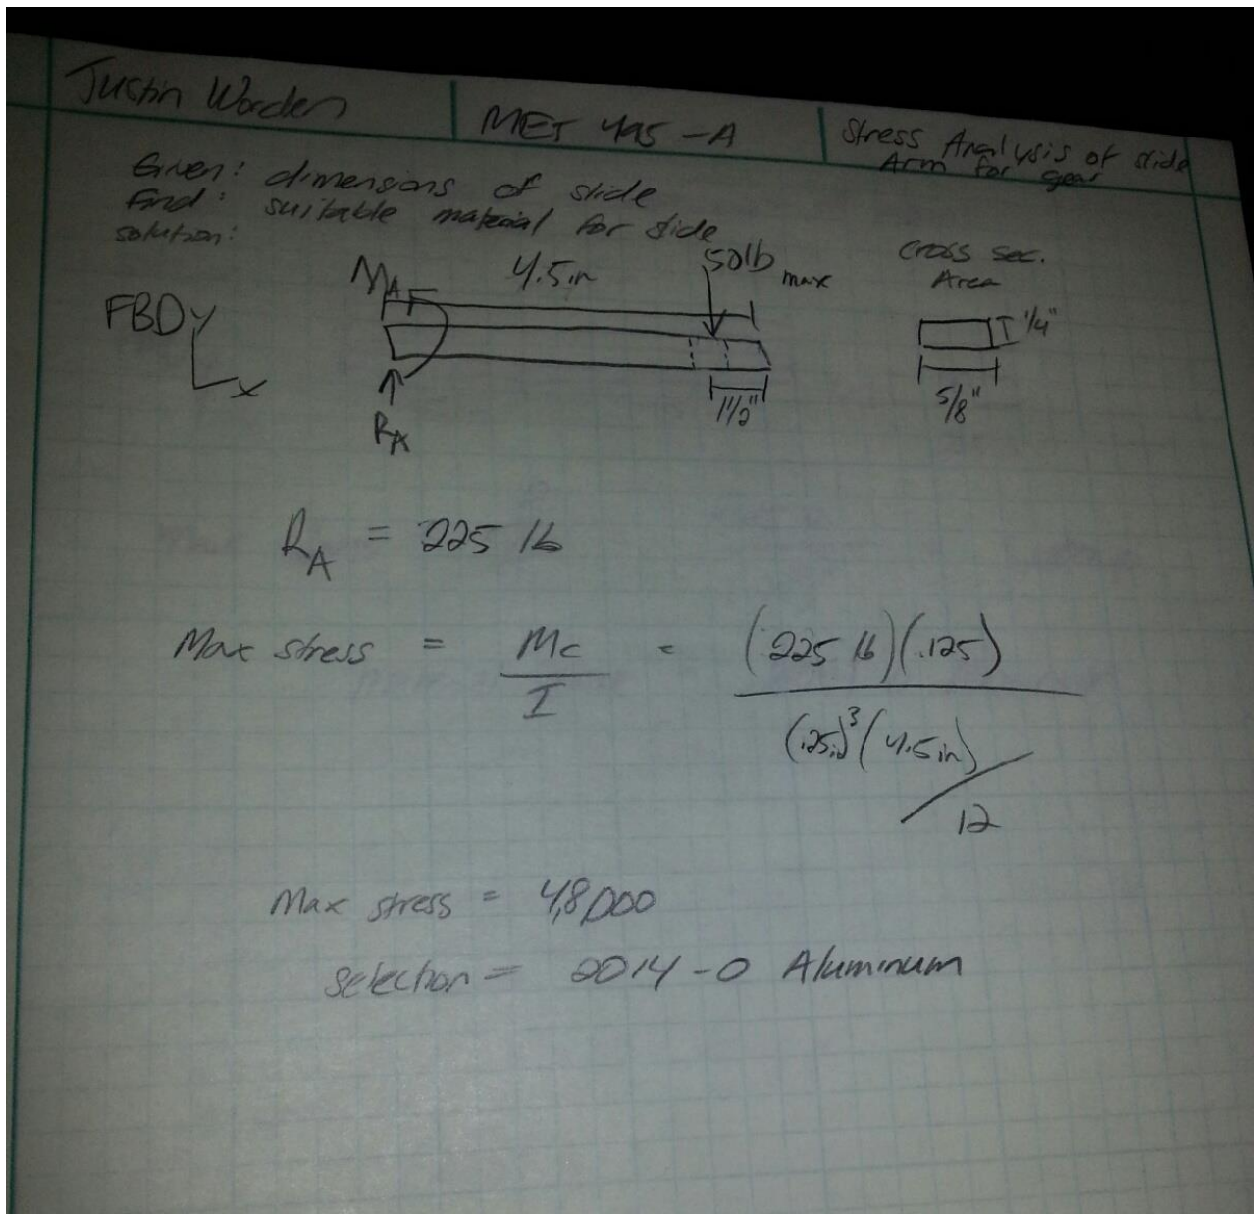 Justin Worden
MET 495-A
Stress Analysis of slide
Arm for gear
Given: dimensions of slide
Find: suitable material for slide
solution:
FBD
y
x
MA
4.5in
50lb max
1 1/2"
RA
cross sec.
Area
1/4"
5/8"
RA = 225 lb
Max stress = Mc / I = (225 lb)(.125) / (.25in)³(4.5in) / 12
Max stress = 48,000
selection = 2014-0 Aluminum